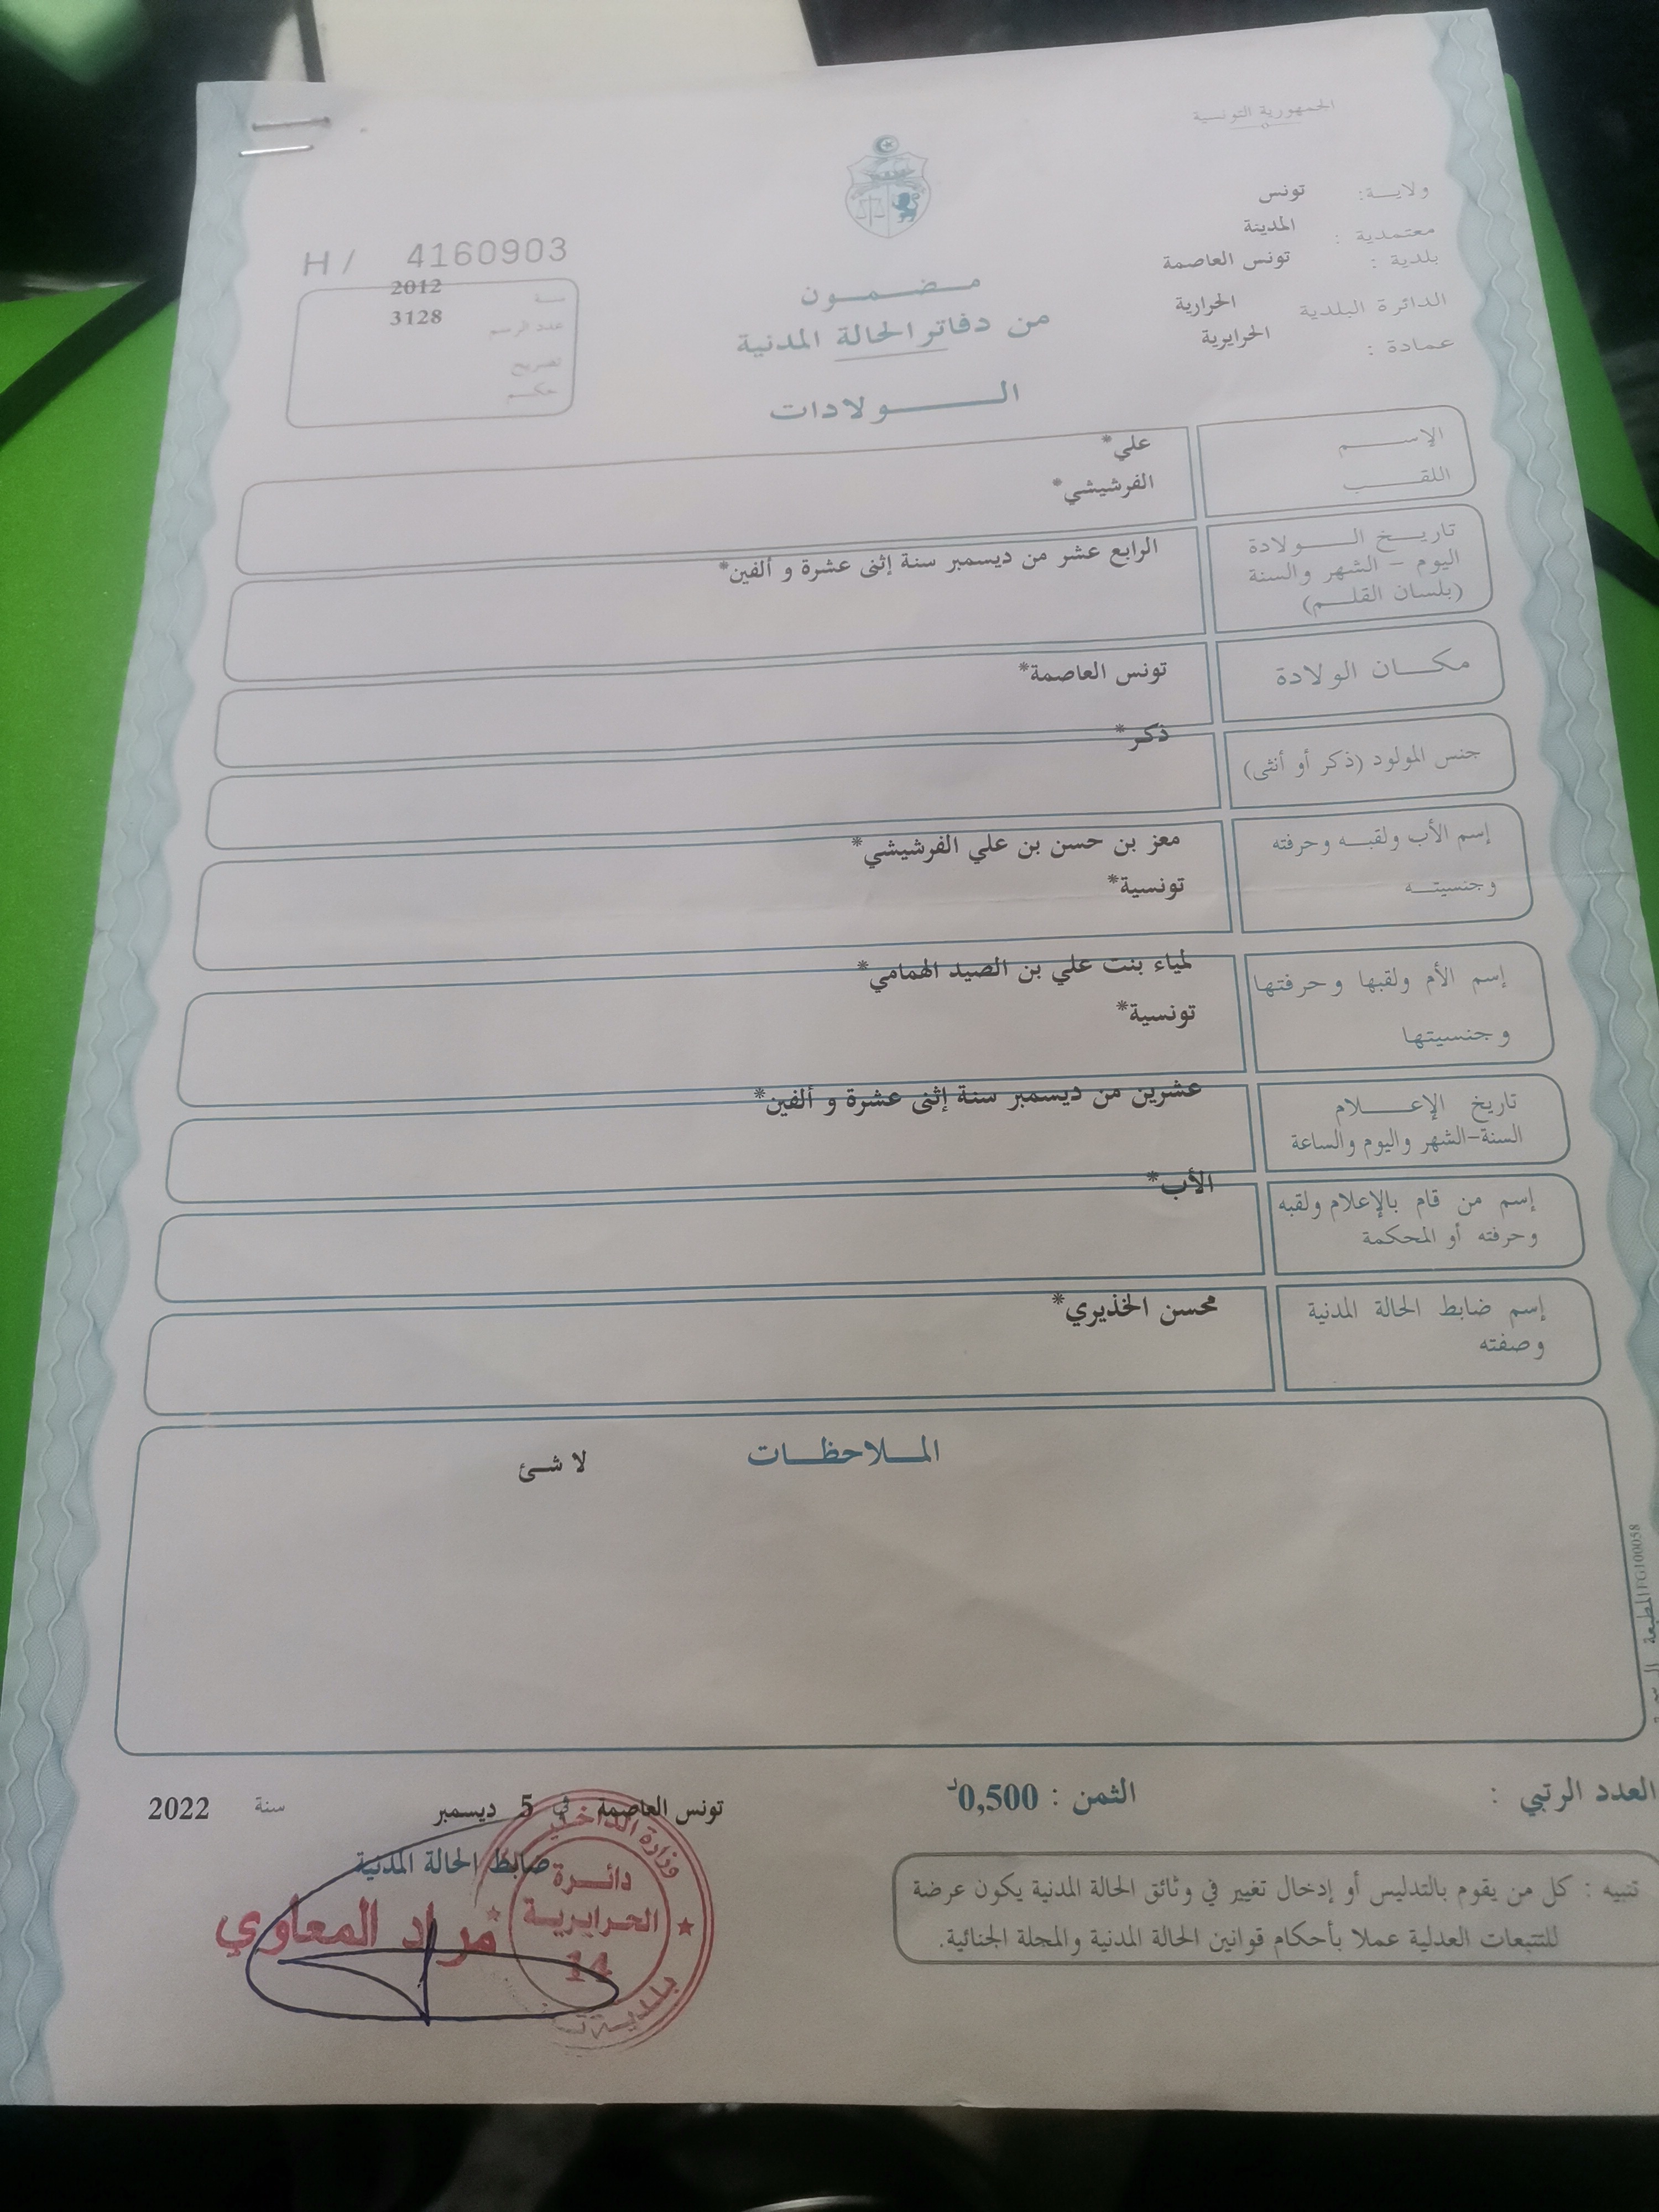 الجمهورية التونسية
ولاية: تونس
معتمدية : المدينة
بلدية : تونس العاصمة
الدائرة البلدية الحرارية
عمادة : الحرايرية
H / 4160903
سنة 2012
عدد الرسم 3128
تصريح
حكم
مضمون
من دفاتر الحالة المدنية
الولادات
الإسم علي*
اللقب الفرشيشي*
تاريخ الولادة
اليوم - الشهر والسنة
(بلسان القلم)
الرابع عشر من ديسمبر سنة إثنى عشرة و ألفين*
مكان الولادة تونس العاصمة*
جنس المولود (ذكر أو أنثى) ذكر*
إسم الأب ولقبه وحرفته معز بن حسن بن علي الفرشيشي*
وجنسيته تونسية*
إسم الأم ولقبها وحرفتها لمياء بنت علي بن الصيد الهمامي*
وجنسيتها تونسية*
تاريخ الإعلام عشرين من ديسمبر سنة إثنى عشرة و ألفين*
السنة-الشهر واليوم والساعة
إسم من قام بالإعلام ولقبه الأب*
وحرفته أو المحكمة
إسم ضابط الحالة المدنية محسن الخذيري*
وصفته
الملاحظات لا شئ
العدد الرتبي :
الثمن : 0,500د
تونس العاصمة في 5 ديسمبر سنة 2022
ضابط الحالة المدنية
مراد المعاوي
وزارة الداخلية
دائرة
الحرايرية
14
بلدية
تنبيه : كل من يقوم بالتدليس أو إدخال تغيير في وثائق الحالة المدنية يكون عرضة
للتتبعات العدلية عملا بأحكام قوانين الحالة المدنية والمجلة الجنائية.